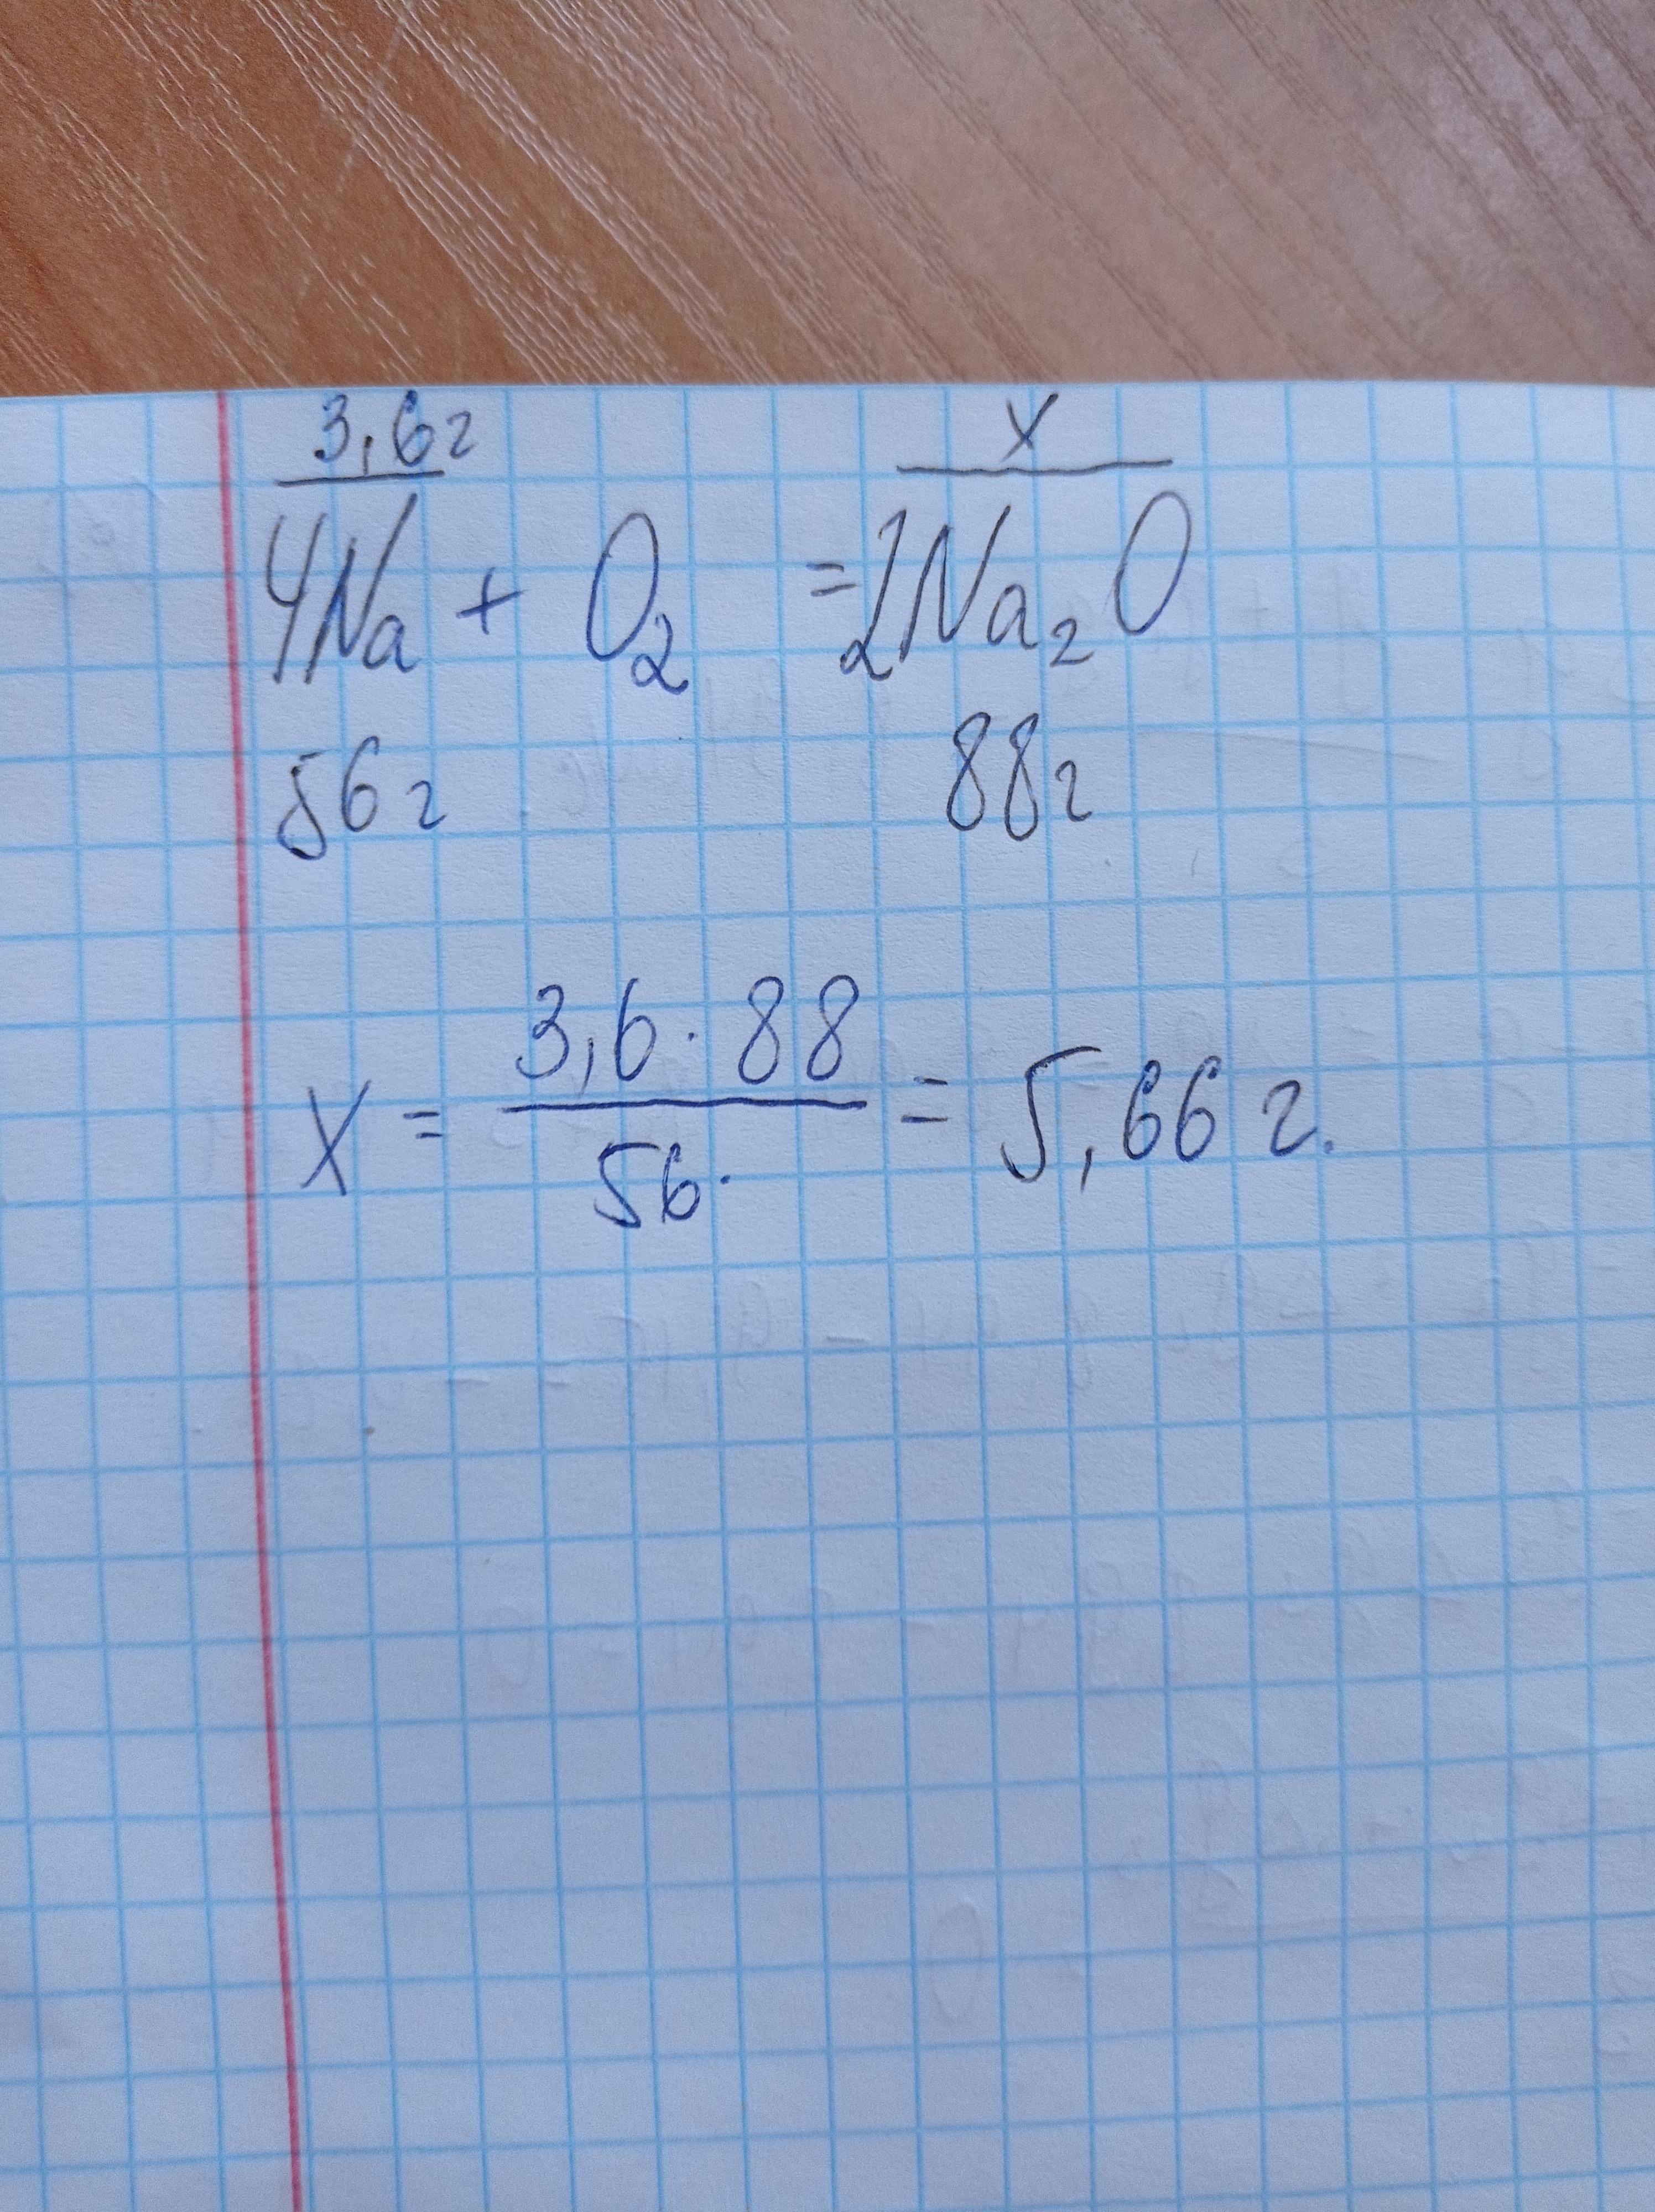 3,6г x
4Na + O₂ = 2Na₂O
56г 88г
x = 3,6·88 / 56. = 5,66 г.